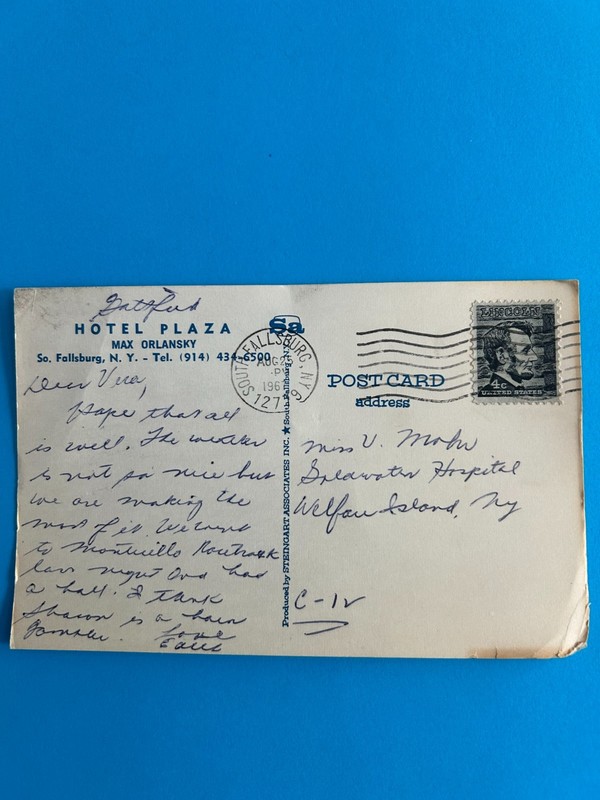 HOTEL PLAZA
MAX ORLANSKY
So. Fallsburg, N. Y. - Tel. (914) 434-6500
Dear Vera,
Hope that all
is well. The weather
is not so nice but
we are making the
most of it. We went
to Monticello Racetrack
last night and had
a ball. I think
is a born
Gambler. Love
Sa
Produced by STEINGART ASSOCIATES INC. ★ South Fallsburg, N.Y.
SOUTH FALLSBURG, NY
AUG
PM
196
POST CARD
address
LINCOLN
4c
UNITED STATES
Miss V. Mohr
Goldwater Hospital
Welfare Island, Ny
C-12